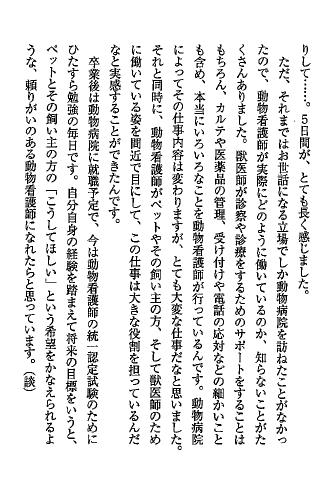 りして……。５日間が、とても長く感じました。
ただ、それまではお世話になる立場でしか動物病院を訪ねたことがなかっ
たので、動物看護師が実際にどのように働いているのか、知らないことがた
くさんありました。獣医師が診察や診療をするためのサポートをすることは
もちろん、カルテや医薬品の管理、受け付けや電話の応対などの細かいこと
も含め、本当にいろいろなことを動物看護師が行っているんです。動物病院
によってその仕事内容は変わりますが、とても大変な仕事だなと思いました。
それと同時に、動物看護師がペットやその飼い主の方、そして獣医師のため
に働いている姿を間近で目にして、この仕事は大きな役割を担っているんだ
なと実感することができたんです。
卒業後は動物病院に就職予定で、今は動物看護師の統一認定試験のために
ひたすら勉強の毎日です。自分自身の経験を踏まえて将来の目標をいうと、
ペットとその飼い主の方の「こうしてほしい」という希望をかなえられるよ
うな、頼りがいのある動物看護師になれたらと思っています。（談）